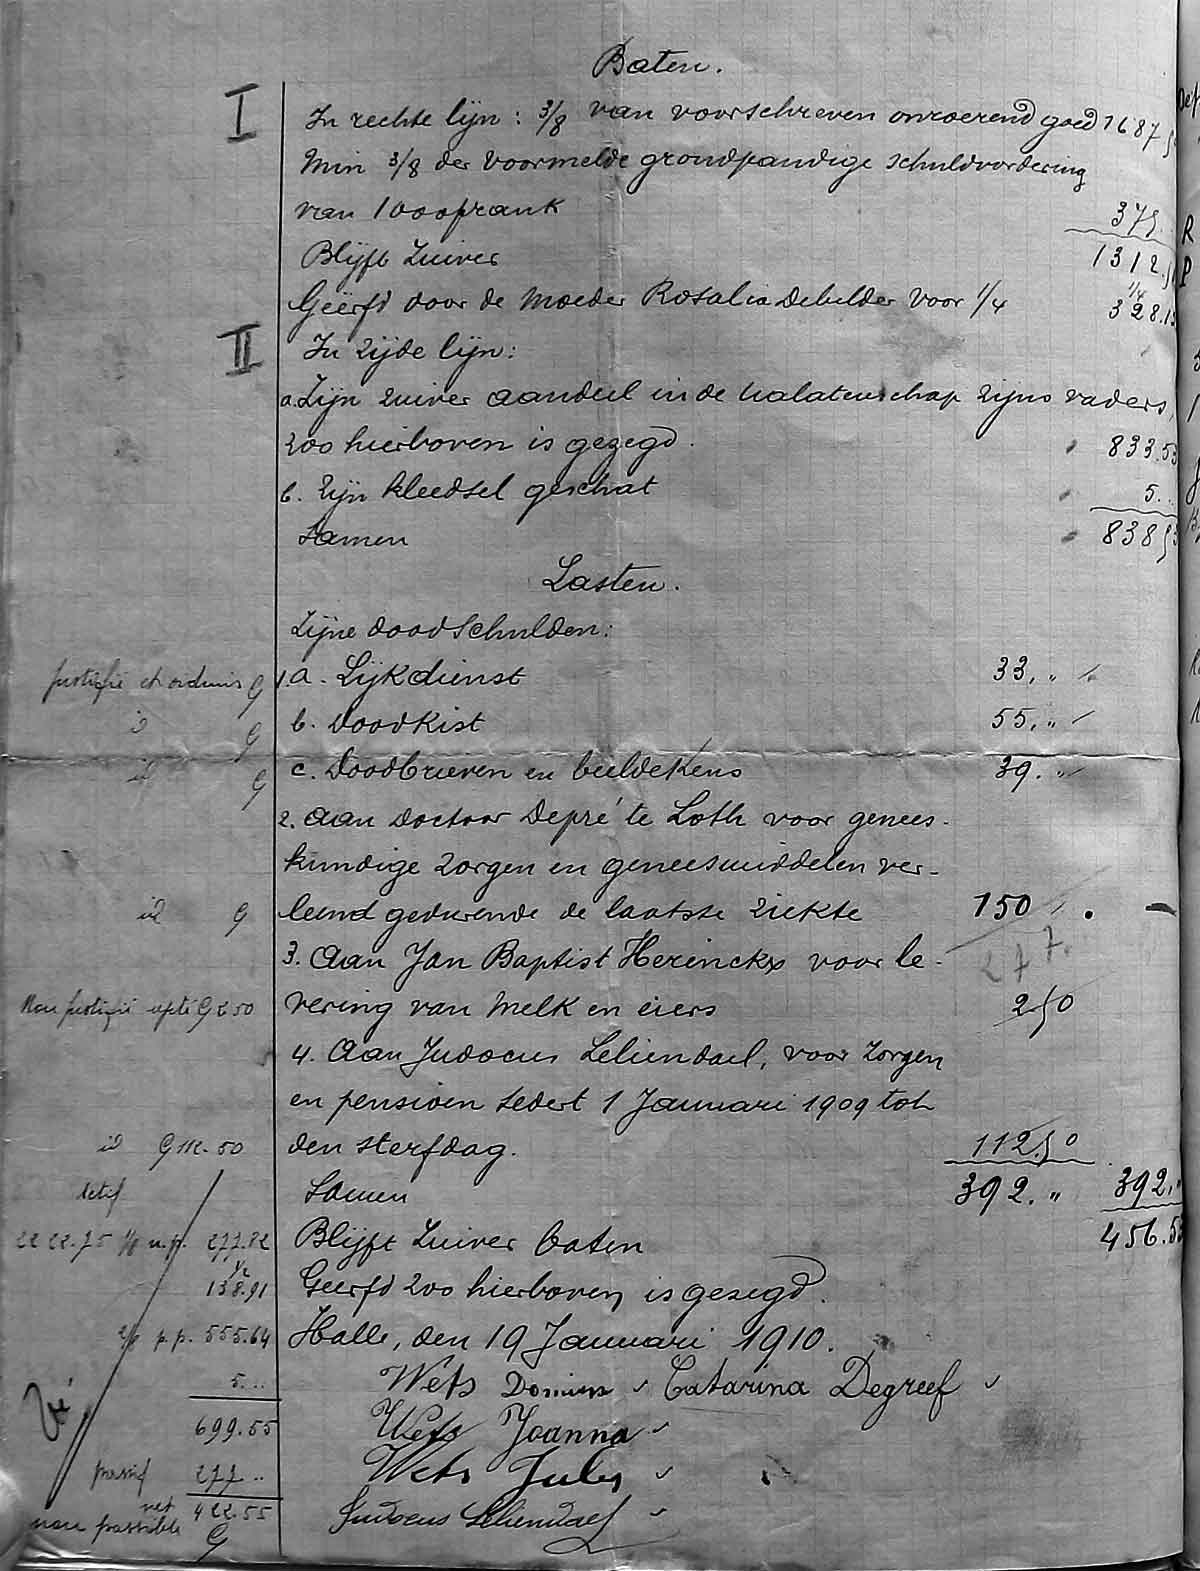 Baten.
I
In rechte lijn : 3/8 van voorschreven onroerend goed 1687
Min 3/8 der voormelde grondpandige schuldvordering
van 1000 frank 375
Blijft zuiver 1312.
1/4
Geërfd door de moeder Rosalia Debelder voor 1/4 328.1
II
In zijde lijn :
a. Zijn zuiver aandeel in de nalatenschap zijns vaders,
zoo hierboven is gezegd. " 833.53
b. Zijn kleedsel geschat " 5..
Samen " 838.53
Lasten.
Zijne doodschulden :
justifié et admis G 1. a. Lijkdienst 33, "
id G b. Doodkist 55, "
id G c. Doodbrieven en beeldekens 39. "
2. aan Doctoor Depré te Loth voor genees-
kundige zorgen en geneesmiddelen ver-
id G leend gedurende de laatste ziekte 150 . -
277.
3. Aan Jan Baptist Herinckx voor le-
Non justifié G 2 50 vering van melk en eiers 2.50
4. Aan Judocus Leliendael, voor zorgen
en pensioen sedert 1 Januari 1909 tot
id G 112.50 den sterfdag. 112.50
Samen 392. " 392. "
2222.75 1/8 n.p. 277.82 Blijft zuiver baten 456.53
1/2
138.91 Geerfd zoo hierboven is gezegd.
2/8 p.p. 555.64 Halle, den 19 Januari 1910.
5... Wets Domien Catarina Degreef
699.55 Wets Joanna
passif 277 .. Wets Jules
net 422.55 Judocus Leliendael
non passible G